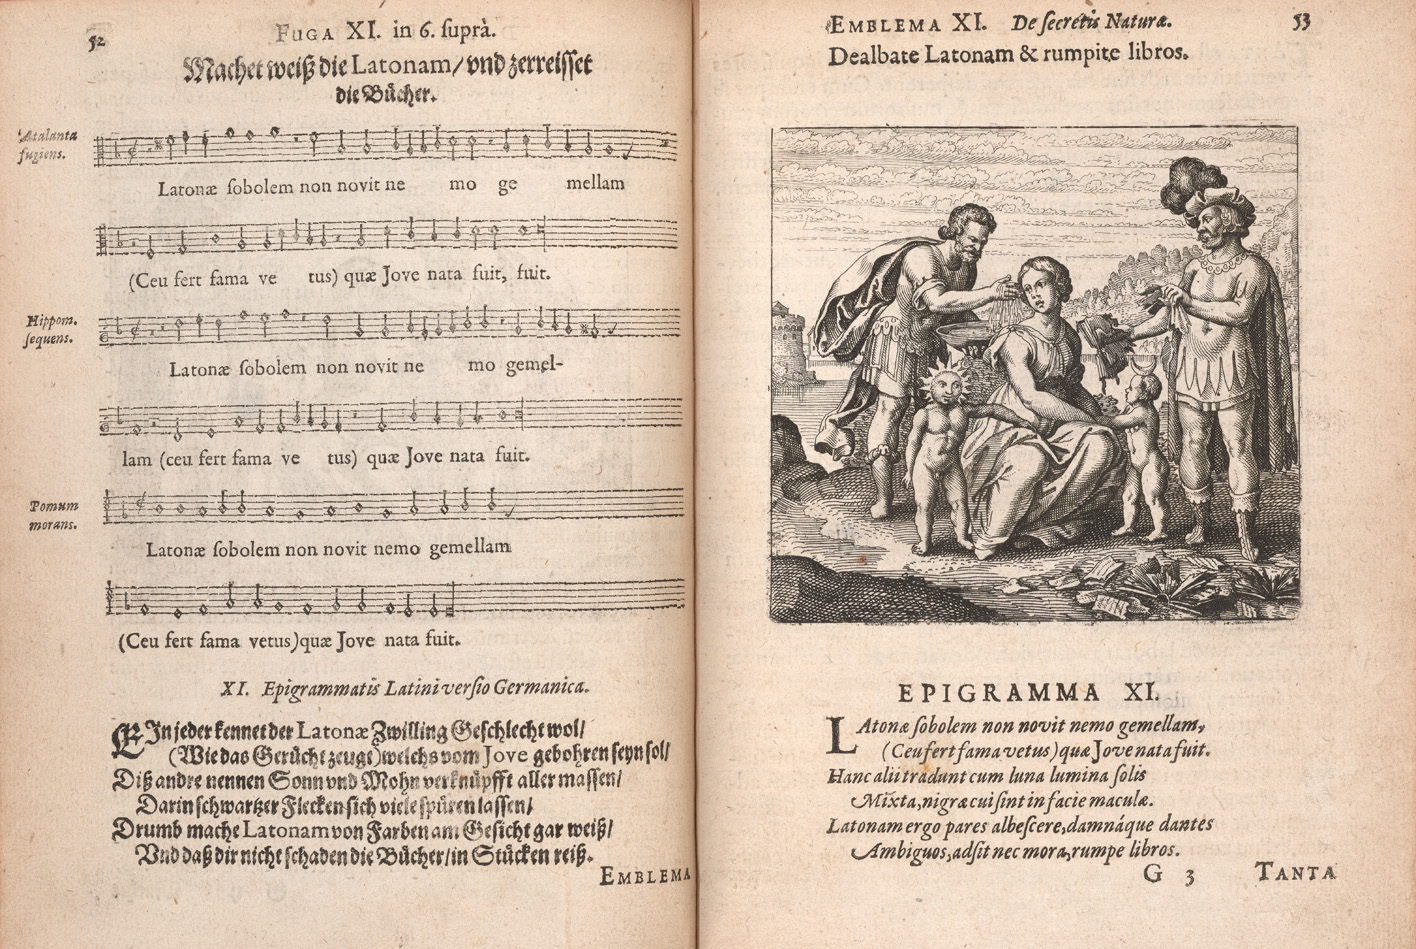 52
FUGA XI. in 6. suprà.
Machet weiß die Latonam/ vnd zerreisset
die Bücher.
Atalanta
fugiens.
Latonæ sobolem non novit ne mo ge mellam
(Ceu fert fama ve tus) quæ Jove nata fuit, fuit.
Hippom.
sequens.
Latonæ sobolem non novit ne mo gemel-
lam (ceu fert fama ve tus) quæ Jove nata fuit.
Pomum
morans.
Latonæ sobolem non novit nemo gemellam
(Ceu fert fama vetus) quæ Jove nata fuit.
XI. Epigrammatis Latini versio Germanica.
EIn jeder kennet der Latonæ Zwilling Geschlecht wol/
(Wie das Gerücht zeugt) welchs vom Jove gebohren seyn sol/
Diß andre nennen Sonn vnd Mohn verknüpfft aller massen/
Darin schwartzer Flecken sich viele spüren lassen/
Drumb mache Latonam von Farben am Gesicht gar weiß/
Vnd daß dir nicht schaden die Bücher/ in Stücken reiß.
EMBLEMA
EMBLEMA XI. De secretis Naturæ.
53
Dealbate Latonam & rumpite libros.
EPIGRAMMA XI.
LAtonæ sobolem non novit nemo gemellam,
(Ceu fert fama vetus) quæ Jove nata fuit.
Hanc alii tradunt cum luna lumina solis
Mixta, nigræ cui sint in facie maculæ.
Latonam ergo pares albescere, damnáque dantes
Ambiguos, adsit nec mora, rumpe libros.
G 3
TANTA